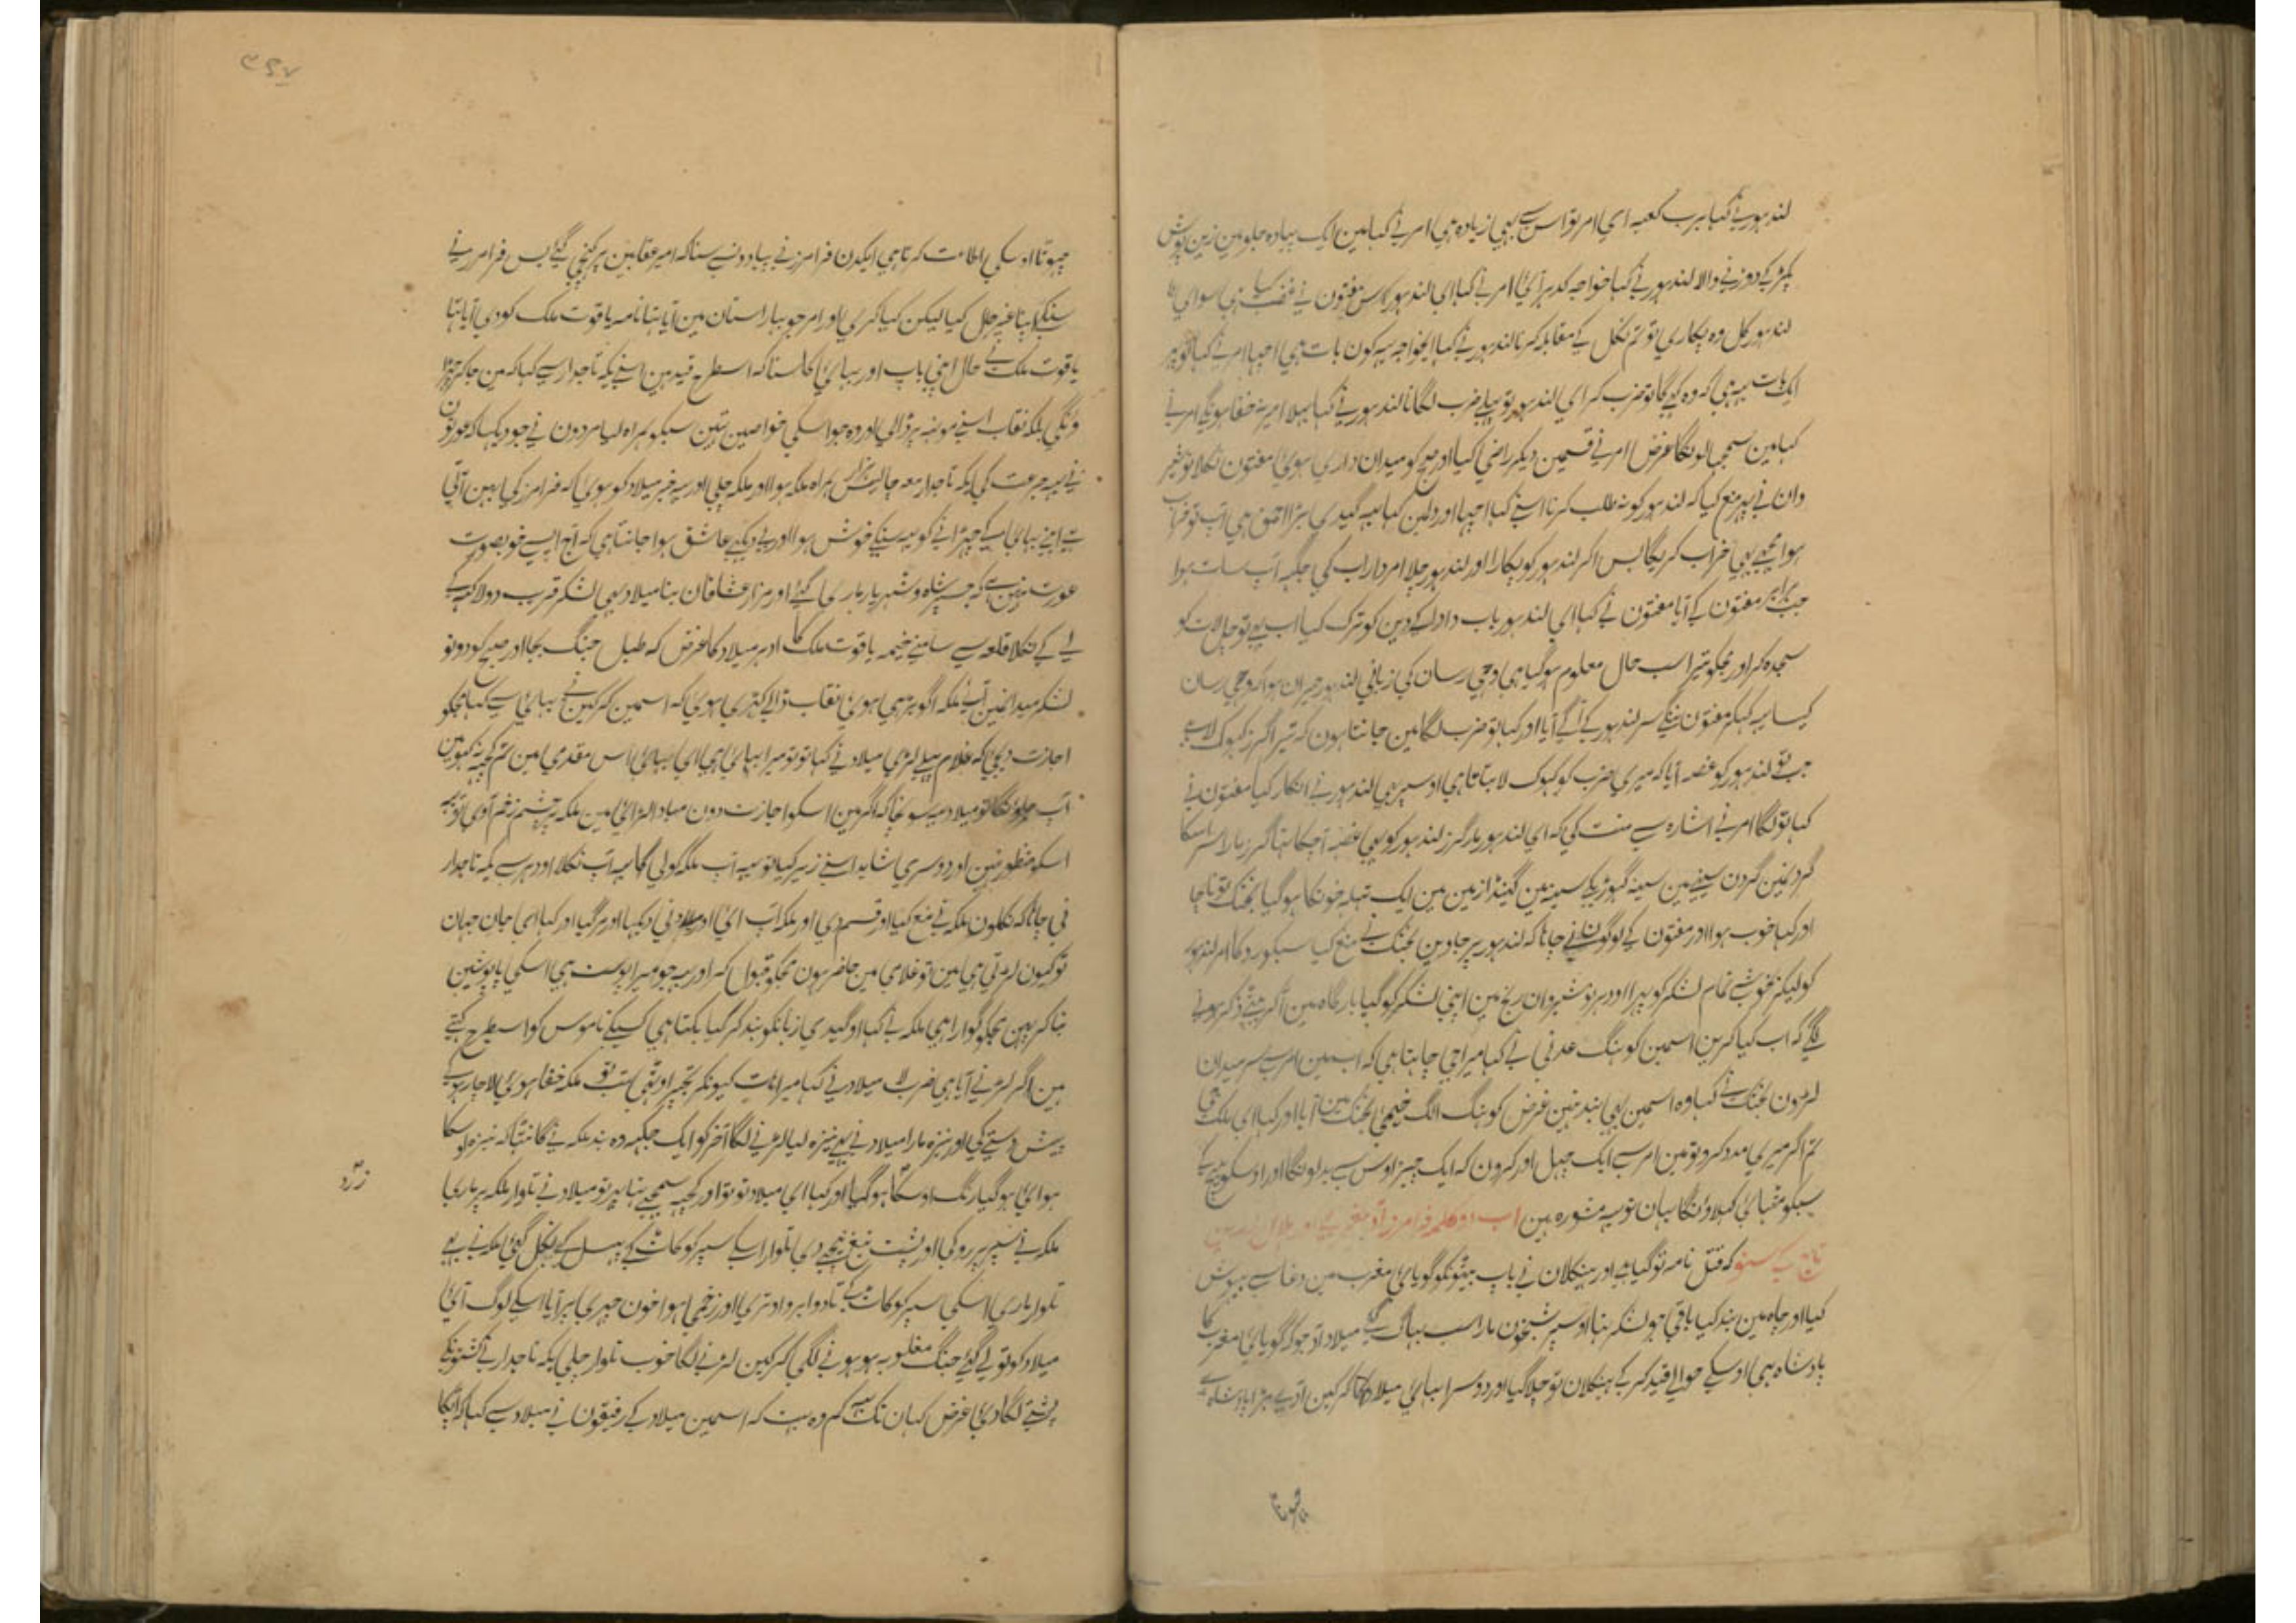 لندہور نے کہا برب کعبہ ای امر تو اس سے بھی زیادہ ہی امر نے کہا مین ایک پیادہ جلو مین زین پوش
پکڑ کے دوڑنے والا لندہور نے کہا خواجہ کدہر آئی امر نے کہا ای لندہور مفتون نے
لندہور کل وہ پکاری تو تم نکل کے مقابلہ کرنا لندہور نے کہا ای خواجہ یہ کون بات ہی اچہا امر نے کہا
ایک بات یہ ہی کہ وہ کہے گا تو ضرب کر ای لندہور تو پہلے ضرب لگانا لندہور نے کہا بہلا امیر نہ خفا ہونگے امر نے
کہا مین سمجہا لونگا غرض امر نے قسمین دیکر راضی کیا اور صبح کو میدان داری ہوئی مفتون نکلا
وان نے پہر منع کیا کہ لندہور کو نہ طلب کرنا اسنے کہا اچہا اور دلمین کہا یہہ گیدی بڑا احمق ہی آپ تو خراب
ہوا مجہے بھی خراب کریگا بس اکر لندہور کو پکارا اور لندہور چلا امر داراب کی جگہہ آپ سات ہوا
جب برابر مفتون کے آیا مفتون نے کہا ای لندہور باپ دادا کے دین کو ترک کیا اب بہی تو چل لات کو
سجدہ کر اور مجکو تیرا سب حال معلوم ہو گیا ہی وحی رسان کی زبانی لندہور حیران ہوا کہ وحی رسان
کیسا یہہ کہکر مفتون ننگے سر لندہور کے آگے آیا اور کہا تو ضرب لگا مین جانتا ہون کہ تیرا گرز
جب تو لندہور کو غصہ آیا کہ میری ضرب کو بتاتا ہی اوسپر بہی لندہور نے انکار کیا مفتون نے
کہا تو لگا امر نے اشارہ سے منت کی کہ ای لندہور مار گرز لندہور کو بھی غصہ آ چکا تہا گرز مارا سر اسکا
گردنمین گردن سینے مین سینہ گہوڑیکے سینہ مین گینڈا زمین مین ایک تہلہ خونکا ہو گیا بختک تو ناچا
اور کہا خوب ہوا اور مفتون کے لوگون نے چاہا کہ لندہور پر جاوین بختک نے منع کیا سبکو روکا امر لندہور
کو لیکر خوشی تمام لشکر کو پہرا اودہر نوشیروان رنج مین اپنی لشکر کو گیا بارگاہ مین آکر بیٹھے ذکر ہونے
لگے کہ اب کیا کرین اسمین کو ہنگ عدنی نے کہا میرا جی چاہتا ہی کہ اب مین امر سے سر میدان
لڑون بختک نے کہا وہ اسمین بھی بند نہین غرض کو ہنگ الگ خیمہ بختک مین آیا اور کہا ای ملک جی
تم اگر میری مدد کرو تو مین امر سے ایک چہل اور کرون کہ ایک چیز اوس سے بدلونگا اور
سبکو مٹہائی کہلاونگا یہان تو یہ مشورہ ہین اب دو کلمہ فرامرز
سنو کہ قتل نامہ تو گیا ہے اور ہیکلان نے باپ بیٹونکو گویای مغرب مین دغا سے بیہوش
کیا اور چاہ مین بند کیا باقی جو لشکر تہا اوسپر شبخون مارا سب بہاگ گئے میلاد جو کہ گویای مغرب کا
پادشاہ ہی اوسکے حوالے قید کر کے ہیکلان تو چلا گیا اور دوسرا بہائی میلاد کا گرگین
چہوتا
چہوتا اوسکی اطاعت کرتا ہی ایکدن فرامرز نے پیادون سے سنا کہ امیر عقابین پر کہنچی گئے بس فرامرز نے
سنکے اپنا غیر حال کیا لیکن کیا کری اور امر جو بہارستان مین آیا تہا نامہ یاقوت ملک کو دی آیا تہا
یاقوت ملک نے حال اپنی باپ اور بہائی کا سنا کہ اسطرح قید مین اسنے یکہ تاجدار سے کہا کہ مین جا کر چہڑا
ونگی بلکہ نقاب اپنے مونہہ پر ڈالی اور وہ جو اسکی خواصین تہین سبکو ہمراہ لیا مردون نے جو دیکہا کہ عورتون
نے یہہ جرءت کی یکہ تاجدار معہ چالیس ہزار ہمراہ ملکہ ہوا اور ملکہ چلی اور یہ خبر میلاد کو ہوئی کہ فرامرز کی بہن آتی
ہے اپنے بہائی کے چہڑانے کو یہہ سنکے خوش ہوا اور بی دیکہے عاشق ہوا جانتا ہی کہ آج ایسے خوبصورت
عورت نہین ہے کہ جسپر شاہ و شہریار مارے گئے اور ہزار قشاقان بنا میلاد بھی لشکر قریب دو لاکہہ کے
لے کے نکلا قلعہ سے سامنے خیمہ یاقوت ملک کا ادہر میلاد کا غرض کہ طبل جنگ بجا اور صبح کو دونو
لشکر میدانمین آئے ملکہ آگو بڑہی ہوئی نقاب ڈالے کہڑی ہوئی کہ اسمین گرگین نے بہائی سے کہا مجکو
اجازت دیجئی کہ غلام پہلے لڑی میلاد نے کہا تو تو میرا بہائی ہی ای بہائی اس مقدمی مین تم کچہہ نہ کہو مین
آپ جاونگا تو میلاد یہہ سونچا کہ اگر مین اسکو اجازت دون مبادا لڑائی مین ملکہ پر چشم زخم آوی تو یہہ
اسکو منظور نہین اور دوسری شاید اسنے زیر کیا تو یہہ آپ ملکہ کو لے گا یہہ آپ نکلا اودہر سے یکہ تاجدار
نی چاہا کہ نکلون ملکہ نے منع کیا اور قسم دی اور ملکہ آپ آئی اور میلاد نی دیکہا اور مر گیا اور کہا ای جان جہان
تو کیون لڑتی ہی مین تو غلامی مین حاضر ہون مجکو قبول کر اور یہہ جو میرا پوست ہی اسکی پاپوشین
بنا کر پہن مجکو گوارا ہی ملکہ نے کہا او گیدی زبانکو بند کر کیا بکتا ہی کسیکے ناموس کو اسطرح کہتے
ہین اگر لڑنے آیا ہی ضرب لا میلاد نے کہا میرا ہات کیونکر تجہپر اوٹھی تب تو ملکہ خفا ہوئی لاچار ہو کے
پیش دستی کی اور نیزہ مارا میلاد نے بہی نیزہ لیا لڑنے لگا آخر کو ایک جگہہ وہ بند ملکہ نے گانٹہا کہ نیزہ اوسکا
ہوائی ہو گیا رنگ اوسکا ہو گیا اور کہا ای میلاد تو تو اور کچہہ سمجہے تہا پہر تو میلاد نے تلوار ملکہ پر ماری
زرد
ملکہ نے سپر پر روکی اور پشت تیغ نیچے دی تلوار اسکے سپر کو کاٹ کے پہسل کے نکل گئی ملکہ نے بہی
تلوار ماری اسکی سپر کو کاٹ کے تا دو ابرو اوتری اور زخمی ہوا خون چہری پر آیا اسکے لوگ آئی
میلاد کو تو لے گئے جنگ مغلوبہ ہونے لگی گرگین لڑنے لگا خوب تلوار چلی یکہ تاجدار نے کشتونکے
پشتے لگا دیئی غرض کہان تک یہہ کم وہ بہت کہ اسمین میلاد کے رفیقون نے میلاد سے کہا کہ
۳۹۷